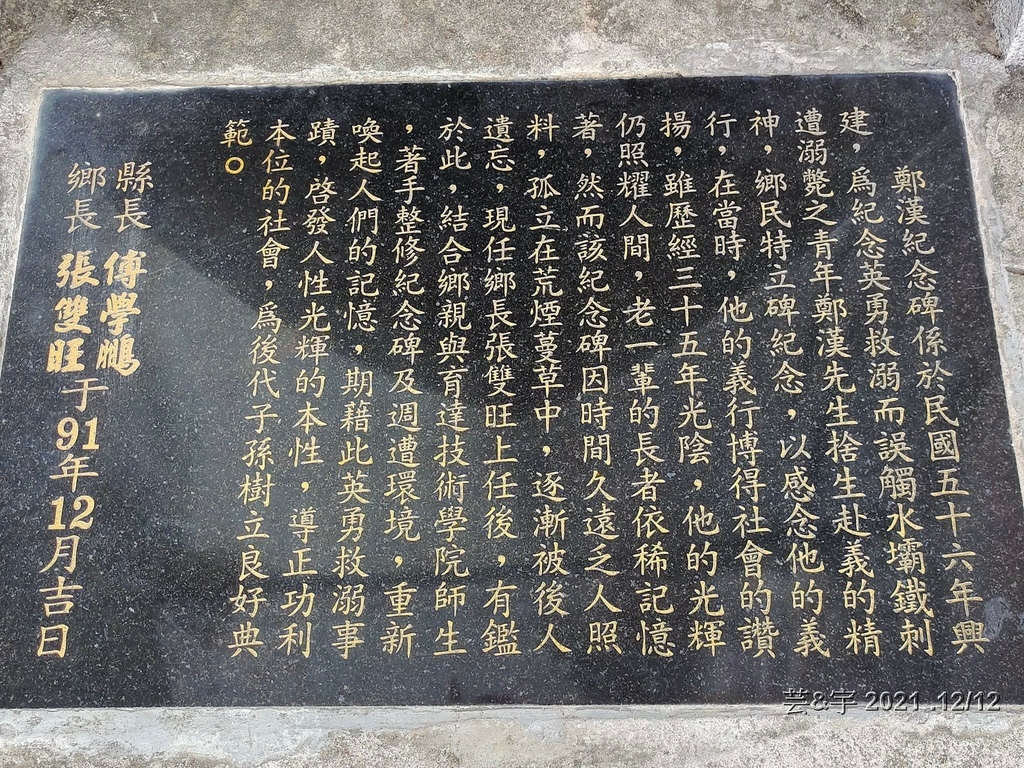 鄭漢紀念碑係於民國五十六年興
建，爲紀念英勇救溺而誤觸水壩鐵刺
遭溺斃之青年鄭漢先生捨生赴義的精
神，鄉民特立碑紀念，以感念他的義
行，在當時，他的義行博得社會的讚
揚，雖歷經三十五年光陰，他的光輝
仍照耀人間，老一輩的長者依稀記憶
著，然而該紀念碑因時間久遠乏人照
料，孤立在荒煙蔓草中，逐漸被後人
遺忘，現任鄉長張雙旺上任後，有鑑
於此，結合鄉親與育達技術學院師生
，著手整修紀念碑及週遭環境，重新
喚起人們的記憶，期藉此英勇救溺事
蹟，啓發人性光輝的本性，導正功利
本位的社會，爲後代子孫樹立良好典
範。
縣長 傅學鵬
鄉長 張雙旺于91年12月吉日
芸&宇 2021 .12/12